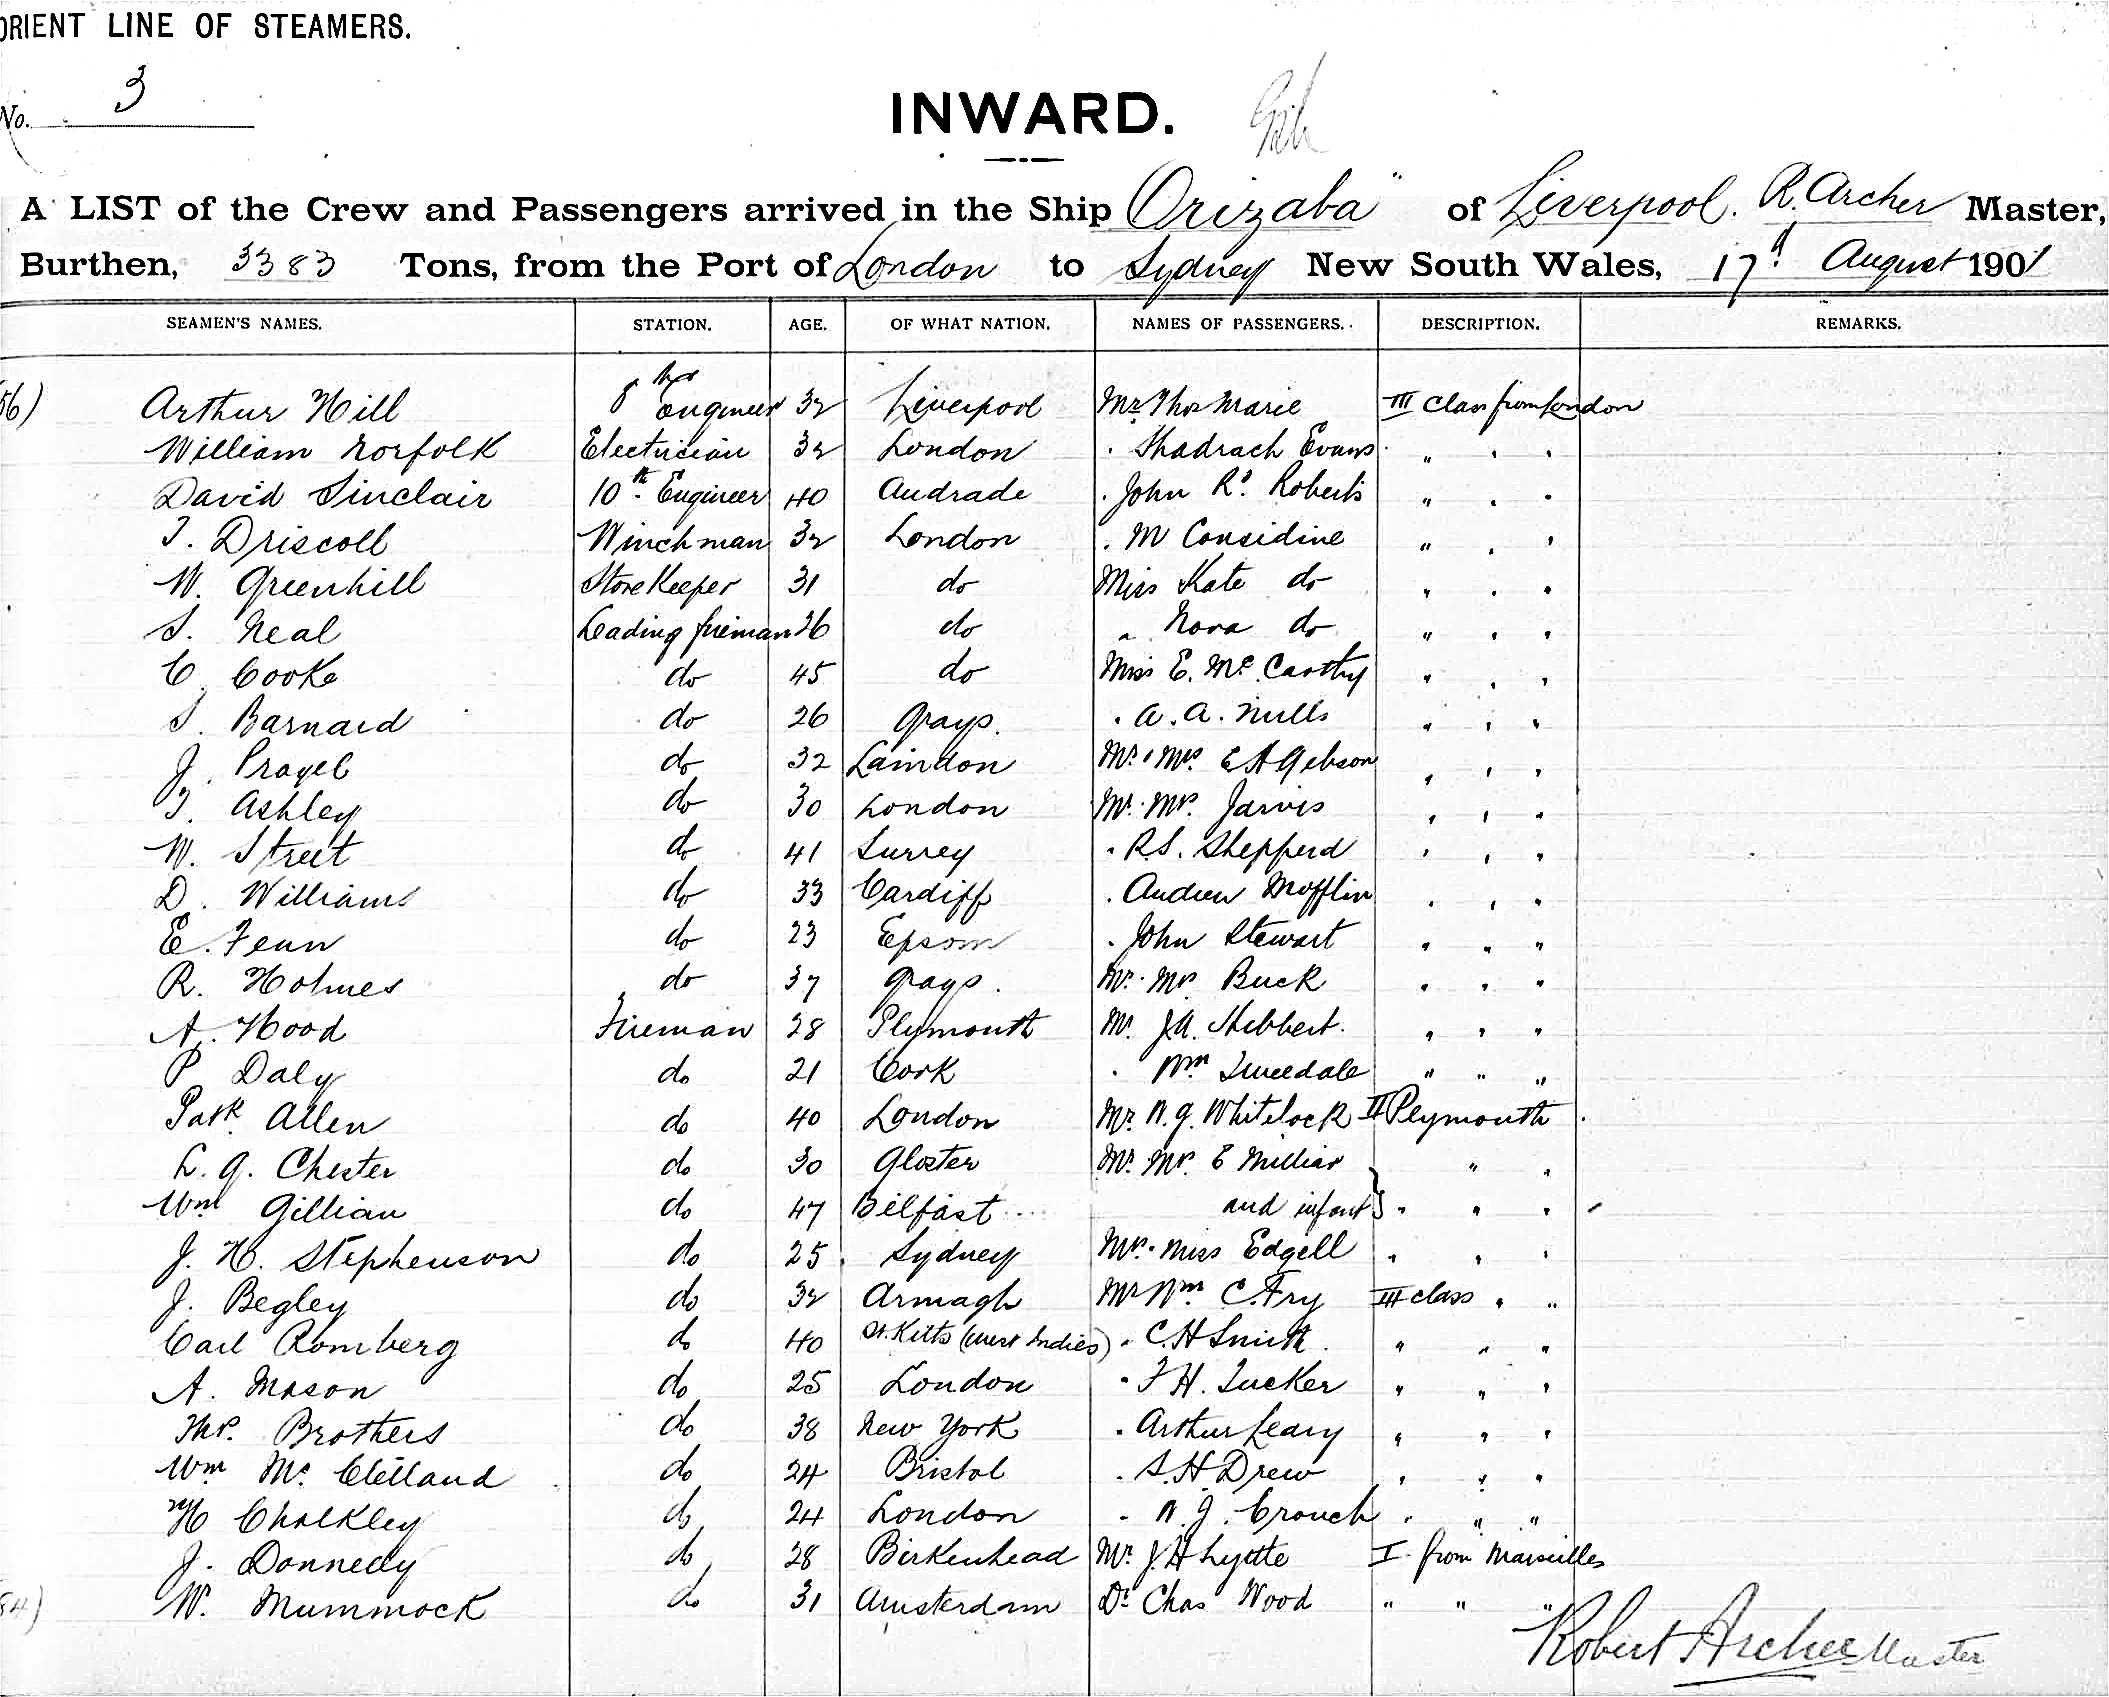 ORIENT LINE OF STEAMERS.
No. 3
INWARD.
A LIST of the Crew and Passengers arrived in the Ship "Orizaba" of Liverpool. R. Archer Master,
Burthen, 3383 Tons, from the Port of London to Sydney New South Wales, 17th August 1901
SEAMEN'S NAMES. STATION. AGE. OF WHAT NATION. NAMES OF PASSENGERS. DESCRIPTION. REMARKS.
56) Arthur Hill 8th Engineer 32 Liverpool Mr. Thos Marie III Class from London
William Norfolk Electrician 32 London . Shadrach Evans " " "
David Sinclair 10th Engineer 40 Andrade . John Rd. Roberts " " "
T. Driscoll Winchman 32 London . M Considine " " "
W. Greenhill Store Keeper 31 do Miss Kate do " " "
S. Neal Leading fireman 26 do " Nora do " " "
C. Cooke do 45 do Miss E. Mc Carthy " " "
S. Barnard do 26 Grays. . A. A. Mills " " "
J. Prayel do 32 Laindon Mr. & Mrs. E A Gibson " " "
T. Ashley do 30 London Mr. Mrs. Jarvis " " "
W. Street do 41 Surrey . R.S. Shepperd " " "
D. Williams do 33 Cardiff . Andrew Mofflin " " "
E. Fenn do 23 Epsom . John Stewart " " "
R. Holmes do 37 Grays. Mr. Mrs. Buck " " "
A. Hood Fireman 28 Plymouth Mr. J.A. Hibbert. " " "
P Daly do 21 Cork . Wm Tweedale " " "
Patk. Allen do 40 London Mr. W. G. Whitelock II Plymouth
L. G. Chester do 30 Gloster Mr. Mrs. E Milliar " "
Wm Gillian do 47 Belfast and infant " " "
J. H. Stephenson do 25 Sydney Mrs. Miss Edgell " " "
J. Begley do 32 Armagh Mr Wm. C. Fry III class " "
Carl Romberg do 40 St. Kitts (West Indies) . C. H Smith. " " "
A. Mason do 25 London . F H. Tucker " " "
Thos. Brothers do 38 New York . Arthur Leary " " "
Wm Mc. Clelland do 24 Bristol . S. H Drew " " "
H Chalkley do 24 London . W. J. Crouch " " "
J. Donnedy do 28 Birkenhead Mr. J. H Lyttle I from Marseilles
84) W. Mummock do 31 Amsterdam Dr. Chas Wood " " "
Robert Archer Master